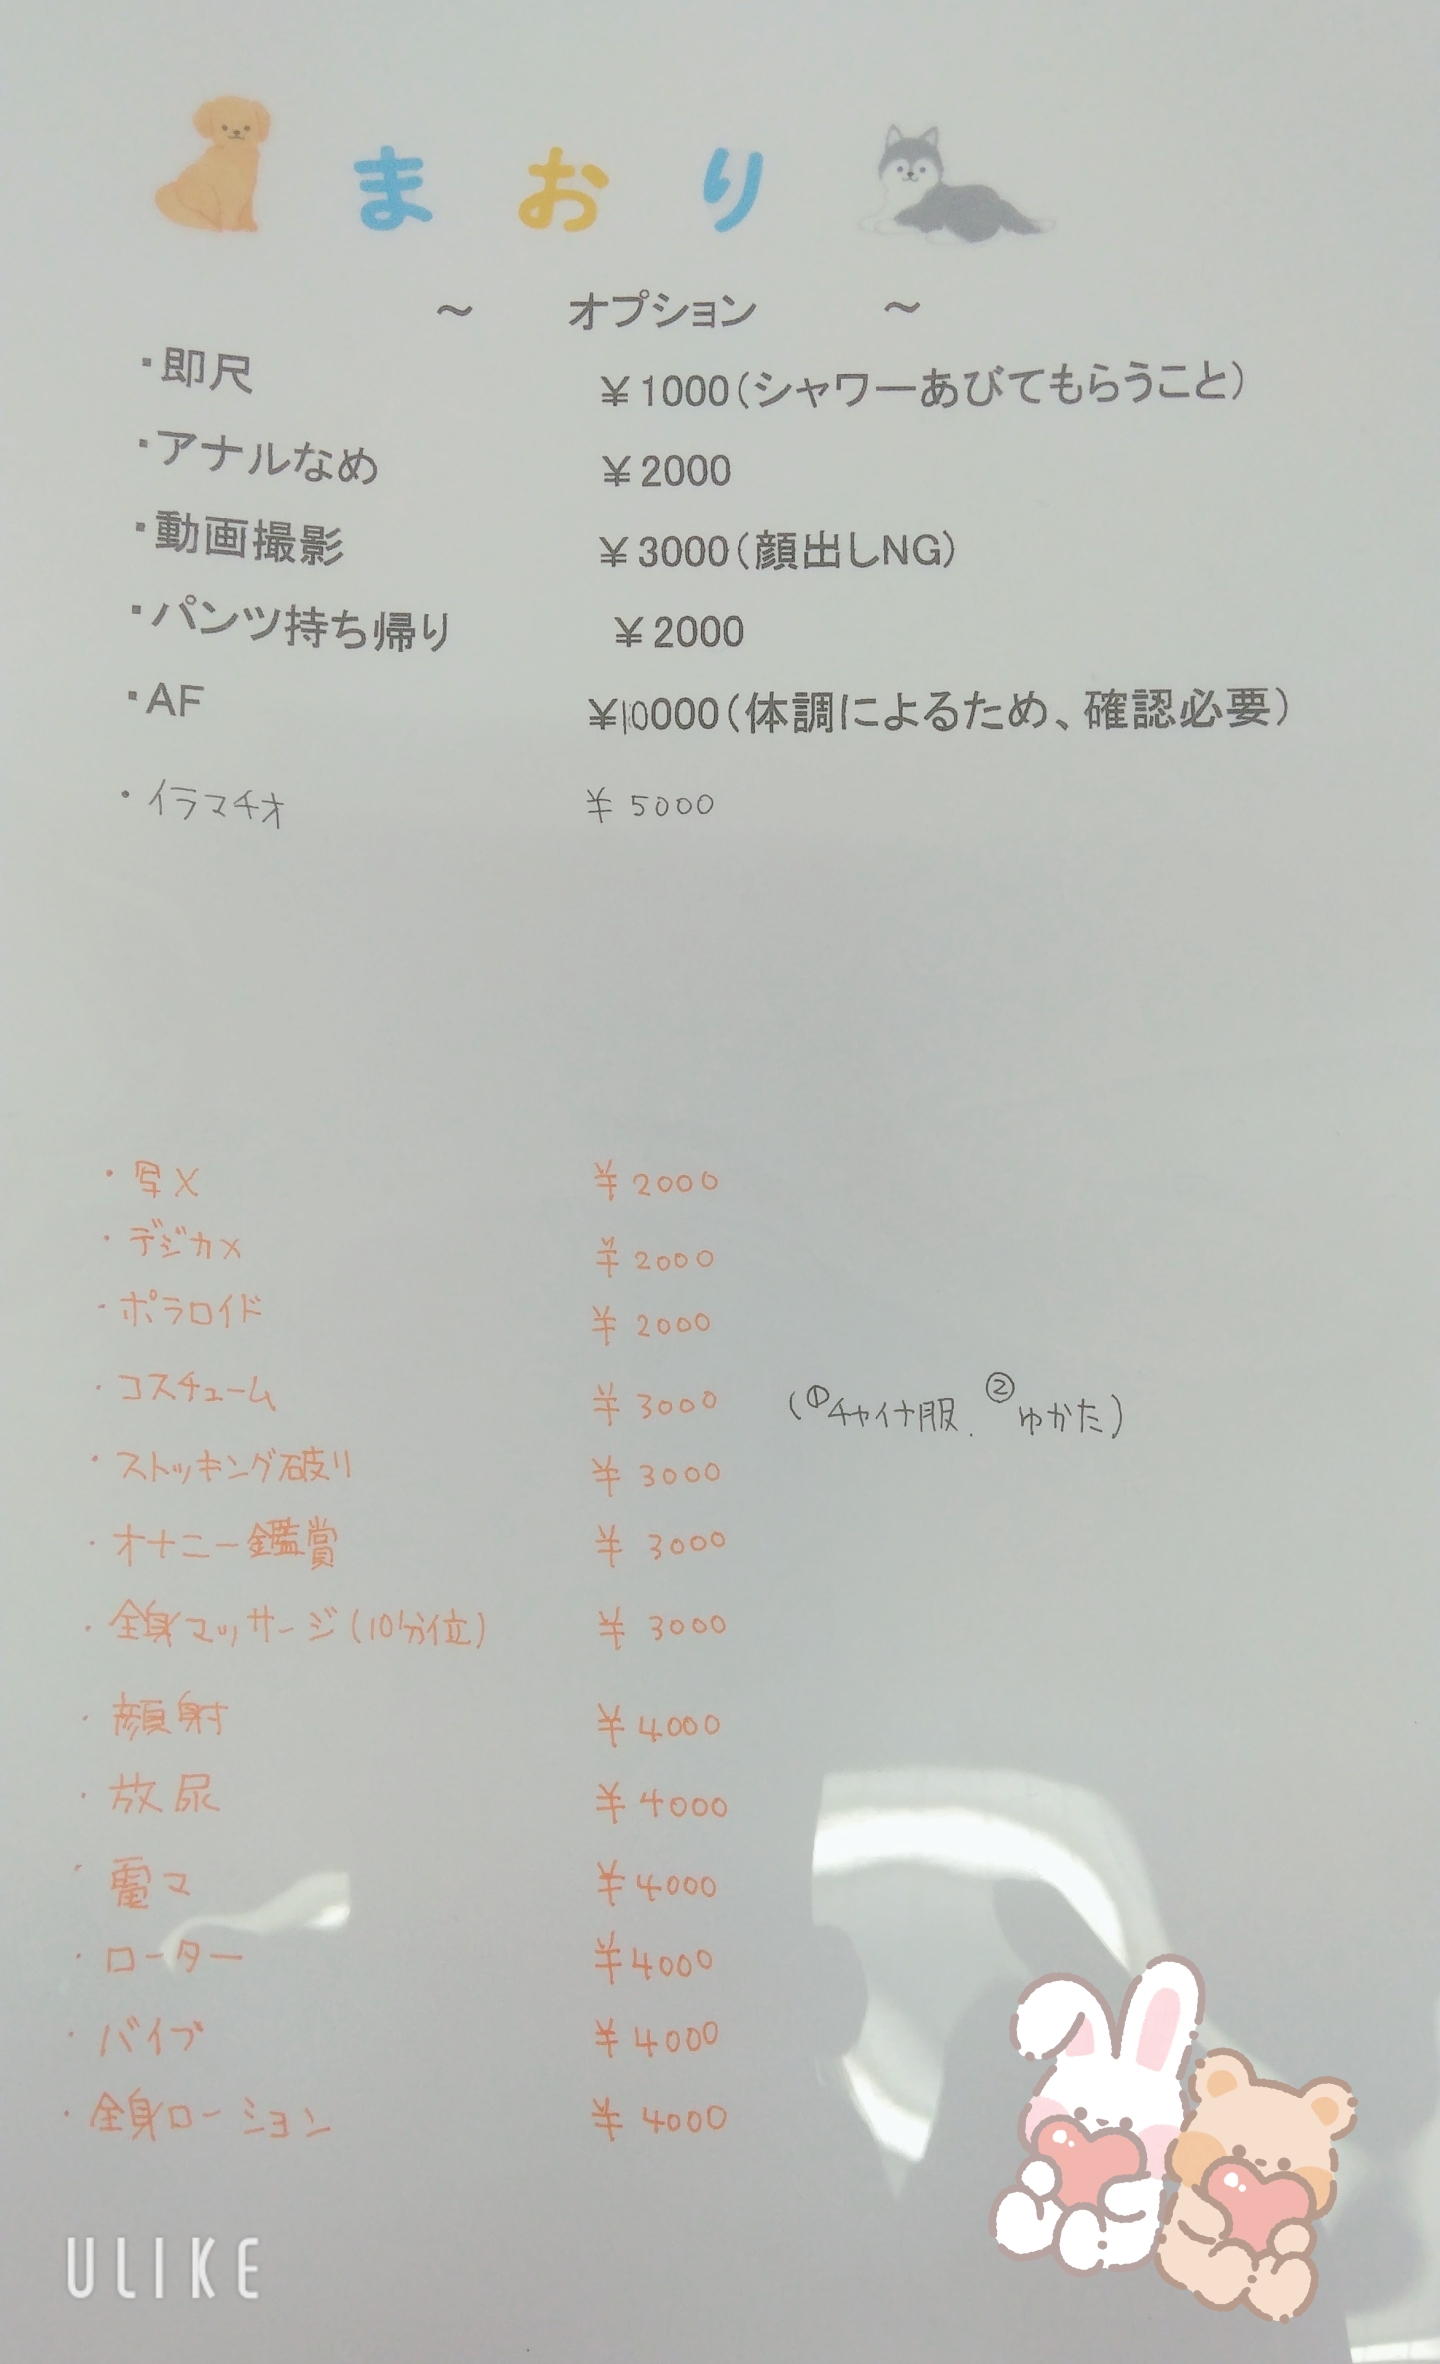 まおり
～ オプション ～
・即尺 ¥1000(シャワーあびてもらうこと)
・アナルなめ ¥2000
・動画撮影 ¥3000(顔出しNG)
・パンツ持ち帰り ¥2000
・AF ¥10000(体調によるため、確認必要)
・イラマチオ ¥5000
・写メ ¥2000
・デジカメ ¥2000
・ポラロイド ¥2000
・コスチューム ¥3000 (①チャイナ服. ②ゆかた)
・ストッキング破り ¥3000
・オナニー鑑賞 ¥3000
・全身マッサージ(10分位) ¥3000
・顔射 ¥4000
・放尿 ¥4000
・電マ ¥4000
・ローター ¥4000
・バイブ ¥4000
・全身ローション ¥4000
ULIKE